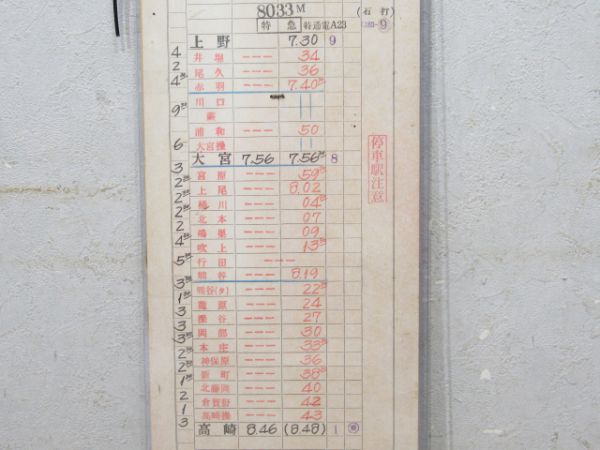 8033M (石打)
特急 特通電A23 9
上野 7.30 9
4
井堀 --- 34
2
尾久 --- 36
4
赤羽 --- 7.40
川口 ||
9
蕨
浦和 --- 50
大宮操 ||
6
停車駅注意
大宮 7.56 7.56 8
3
宮原 --- 59
2
上尾 --- 8.02
2
桶川 --- 04
2
北本 --- 07
2
鴻巣 --- 09
4
吹上 --- 13
行田 ---
5
熊谷 --- 8.19
3
熊谷(タ) --- 22
1
籠原 --- 24
3
深谷 --- 27
3
岡部 --- 30
3
本庄 --- 33
2
神保原 --- 36
2
新町 --- 38
1
北藤岡 --- 40
2
倉賀野 --- 42
1
高崎操 --- 43
3
高崎 8.46 (8.48) 1